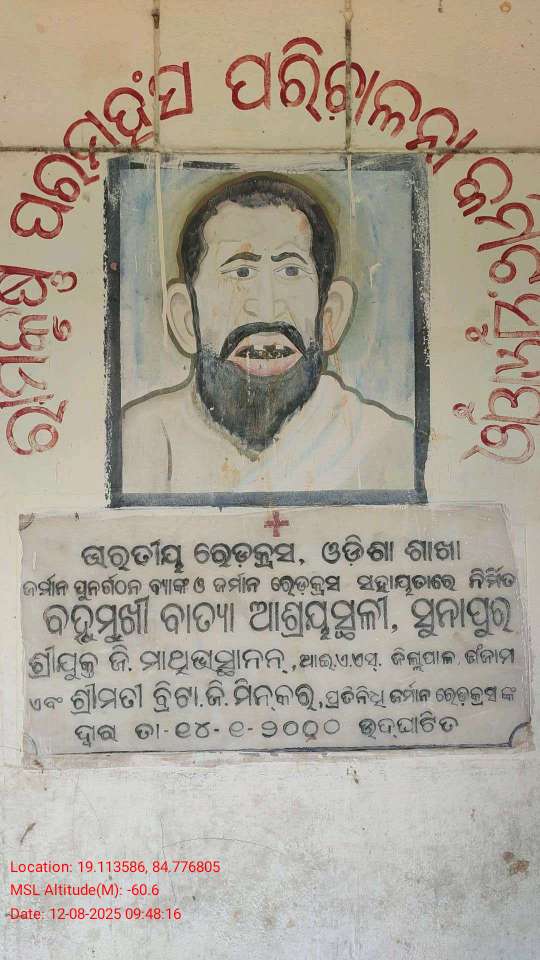 ରାମକୃଷ୍ଣ ପରମହଂସ ପରିଚାଳନା କମିଟି
ଭାରତୀୟ ରେଡ଼କ୍ରସ, ଓଡ଼ିଶା ଶାଖା
ଜର୍ମାନ ପୁନର୍ଗଠନ ବ୍ୟାଙ୍କ ଓ ଜର୍ମାନ ରେଡ଼କ୍ରସ ସହାୟତାରେ ନିର୍ମିତ
ବହୁମୁଖୀ ବାତ୍ୟା ଆଶ୍ରୟସ୍ଥଳୀ, ସୁନାପୁର
ଶ୍ରୀଯୁକ୍ତ ଜି. ମାଥିଭାସ୍ଥାନନ୍, ଆଇ.ଏ.ଏସ୍. ଜିଲ୍ଲାପାଳ, ଗଂଜାମ
ଏବଂ ଶ୍ରୀମତୀ ବ୍ରିଟା.ଜି.ମିନ୍‌କର୍, ପ୍ରତିନିଧି ଜର୍ମାନ ରେଡ଼କ୍ରସ ଙ୍କ
ଦ୍ୱାରା ତା-୧୪-୧-୨୦୦୦ ଉଦ୍‌ଘାଟିତ
Location: 19.113586, 84.776805
MSL Altitude(M): -60.6
Date: 12-08-2025 09:48:16